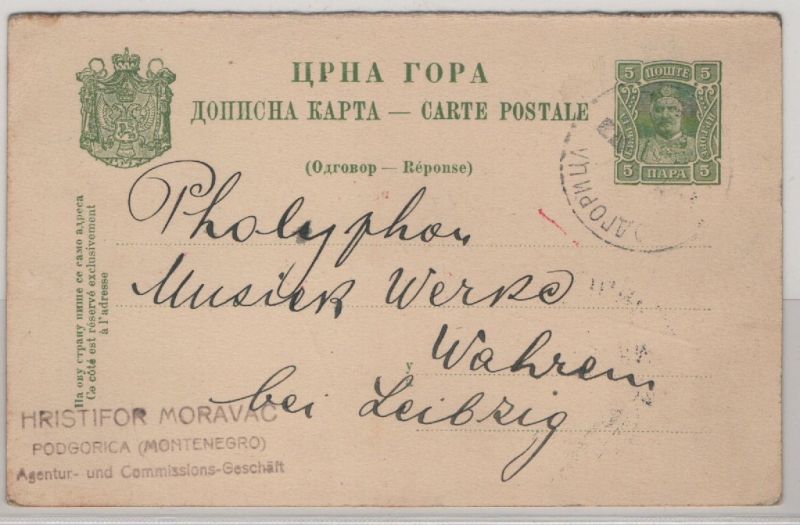 ЦРНА ГОРА
ДОПИСНА КАРТА — CARTE POSTALE
(Одговор — Réponse)
5 ПОШТЕ 5
5 ПАРА 5
ПОДГОРИЦИ
Pholyphon
Musiek Werke
у Wahrem
bei Leibzig
На ову страну пише се само адреса
Ce côté est réservé exclusivement
à l'adresse
HRISTIFOR MORAVAC
PODGORICA (MONTENEGRO)
Agentur- und Commissions-Geschäft